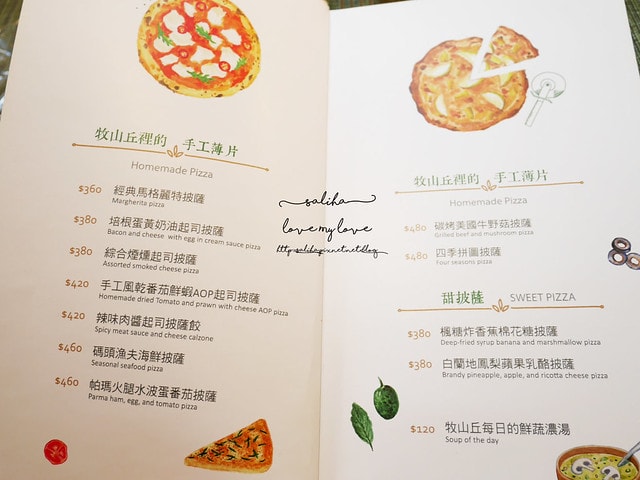 牧山丘裡的 手工薄片
Homemade Pizza
$360 經典馬格麗特披薩
Margherita pizza
$380 培根蛋黃奶油起司披薩
Bacon and cheese with egg in cream sauce pizza
$380 綜合煙燻起司披薩
Assorted smoked cheese pizza
$420 手工風乾番茄鮮蝦AOP起司披薩
Homemade dried Tomato and prawn with cheese AOP pizza
$420 辣味肉醬起司披薩餃
Spicy meat sauce and cheese calzone
$460 碼頭漁夫海鮮披薩
Seasonal seafood pizza
$460 帕瑪火腿水波蛋番茄披薩
Parma ham, egg, and tomato pizza
saliha
love my love
http:saliha.pixnet.net/blog
牧山丘裡的 手工薄片
Homemade Pizza
$480 碳烤美國牛野菇披薩
Grilled beef and mushroom pizza
$480 四季拼圖披薩
Four seasons pizza
甜披薩 SWEET PIZZA
$380 楓糖炸香蕉棉花糖披薩
Deep-fried syrup banana and marshmallow pizza
$380 白蘭地鳳梨蘋果乳酪披薩
Brandy pineapple, apple, and ricotta cheese pizza
$120 牧山丘每日的鮮蔬濃湯
Soup of the day